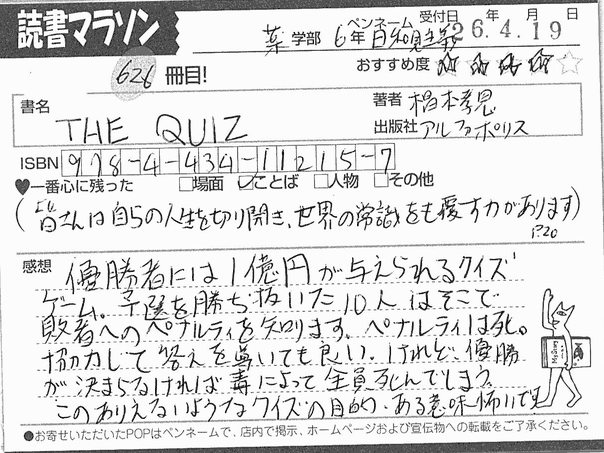 読書マラソン
薬学部 6年 ペンネーム 日和見主義 受付日 26年4月19日
626冊目!
おすすめ度 ★★★★☆
書名
THE QUIZ
著者 椙本孝思
出版社 アルファポリス
ISBN 978-4-434-11215-7
♥一番心に残った □場面 ☑ことば □人物 □その他
(皆さんは自らの人生を切り開き、世界の常識をも覆す力があります)
P.20
感想
優勝者には1億円が与えられるクイズ
ゲーム。予選を勝ち抜いた10人はそこで
敗者へのペナルティを知ります。ペナルティは死。
協力して答えを導いても良い。けれど、優勝
が決まらなければ毒によって全員死んでしまう。
このありえないようなクイズの目的、ある意味怖いです
●お寄せいただいたPOPはペンネームで、店内で掲示、ホームページおよび宣伝物への転載をご了承ください。